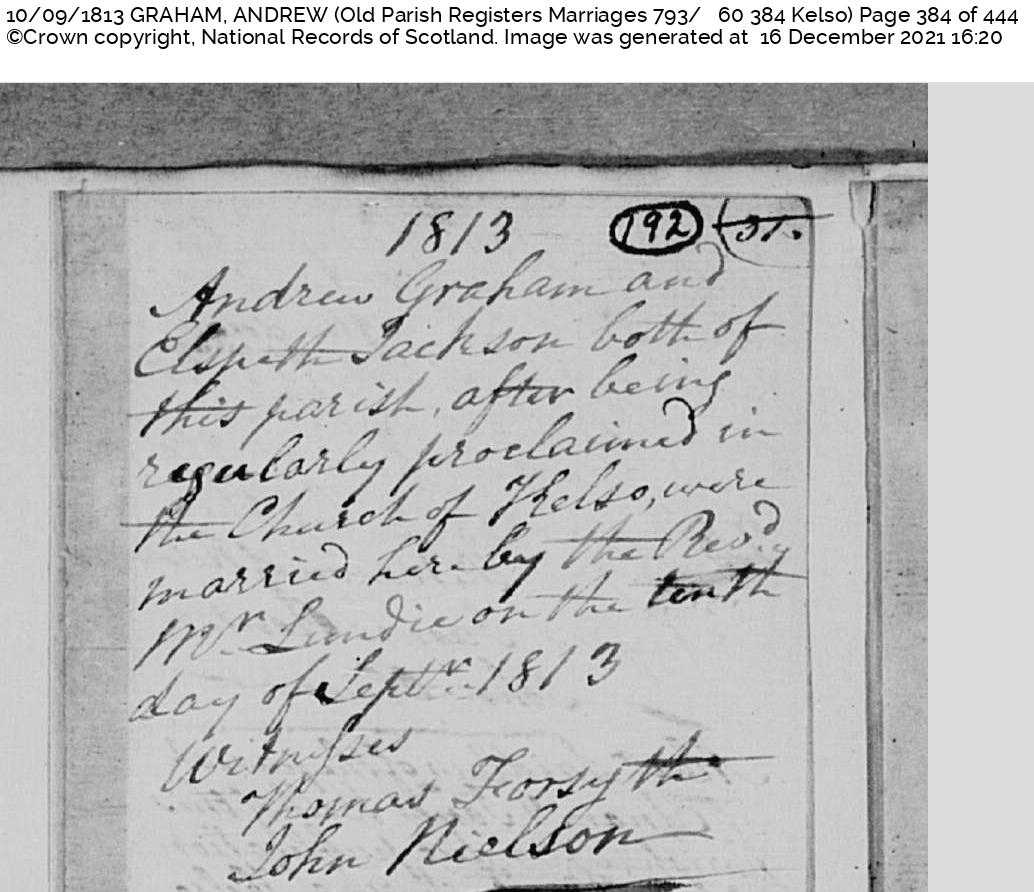 10/09/1813 GRAHAM, ANDREW (Old Parish Registers Marriages 793/ 60 384 Kelso) Page 384 of 444
©Crown copyright, National Records of Scotland. Image was generated at 16 December 2021 16:20
1813 192 31.
Andrew Graham and
Elspeth Jackson both of
this parish, after being
regularly proclaimed in
the Church of Kelso, were
married here by the Revd.
Mr. Lundie on the tenth
day of Septr. 1813
Witnesses
Thomas Forsyth
John Nielson